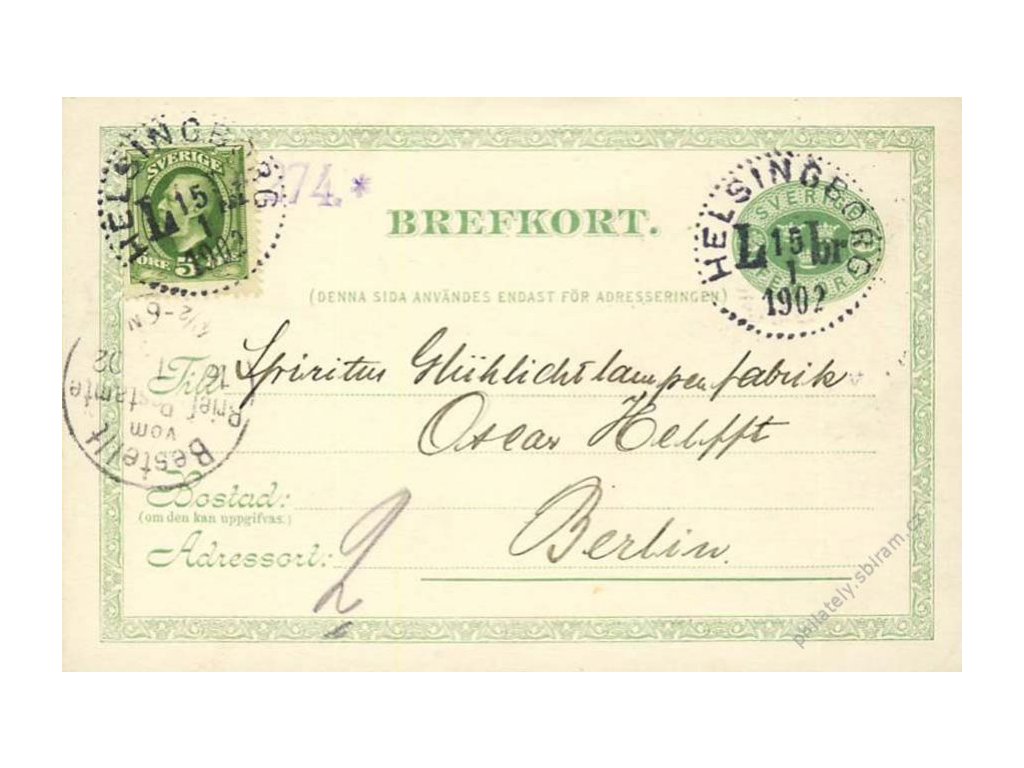 HELSINGBORG
SVERIGE
L 15
1
1902
ÖRE 5
274.*
BREFKORT.
HELSINGBORG
SVERIGE
L 15 1br
1
1902
(DENNA SIDA ANVÄNDES ENDAST FÖR ADRESSERINGEN)
Till Spiritus Glühlichtlampenfabrik
Oscar Helfft
Bestellt
vom
Brief Postamte
02
½-6 N
Bostad:
(om den kan uppgifvas.)
Adressort: Berlin.
2
philately.sbiram.cz